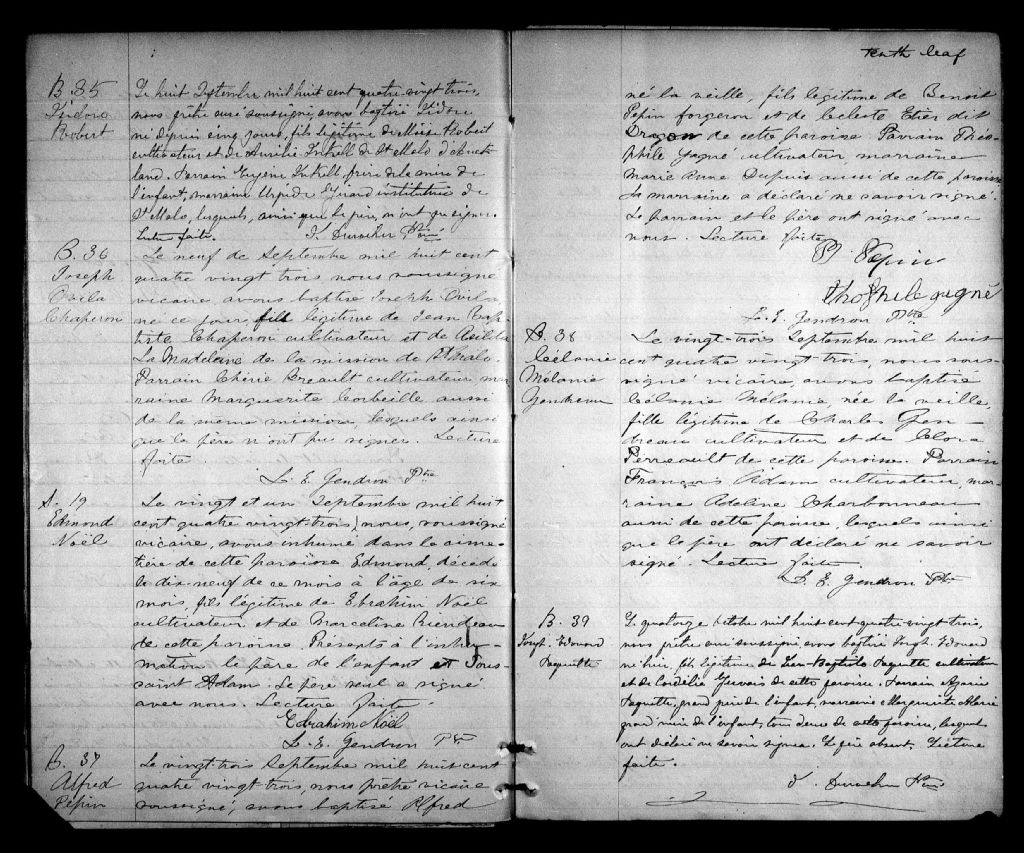 B. 35
Isidore
Robert
Le huit Septembre mil huit cent quatre vingt trois,
nous, prêtre curé soussigné, avons baptisé Isidore
né depuis cinq jours, fils légitime de Moïse Robert
cultivateur et de Aurélie de St Malo
Parrain Eugène frère de la mère de
l'enfant, marraine Girard institutrice de
St Malo, lesquels, ainsi que le père, n'ont pu signer.
Lecture faite. Ptre
B. 36
Joseph
Ovila
Chaperon
Le neuf de Septembre mil huit cent
quatre vingt trois nous soussigné
vicaire, avons baptisé Joseph Ovila,
né ce jour, fils légitime de Jean Bap-
tiste Chaperon cultivateur et de Asilda
La Madelaine de la mission de St Malo.
Parrain Chérie Breault cultivateur mar-
raine Marguerite Corbeille aussi
de la même mission, lesquels ainsi
que le père n'ont pu signer. Lecture
faite.
L. E. Gendron Ptre
S. 19
Edmond
Noël
Le vingt et un Septembre mil huit
cent quatre vingt-trois, nous, soussigné
vicaire, avons inhumé dans le cime-
tière de cette paroisse Edmond, décédé
le dix-neuf de ce mois à l'âge de six
mois, fils légitime de Ebrahim Noël
cultivateur et de Marceline Riendeau
de cette paroisse. Présents à l'inhu-
mation le père de l'enfant et Tous-
saint Adam. Le père seul a signé
avec nous. Lecture faite.
Ebrahim Noël
L. E. Gendron Ptre
B. 37
Alfred
Pépin
Le vingt-trois Septembre mil huit cent
quatre vingt trois, nous prêtre vicaire
soussigné, avons baptisé Alfred
tenth leaf
né la veille, fils légitime de Benoit
Pépin forgeron et de Celeste Etier dit
Dragon de cette paroisse Parrain Théo-
phile Gagné cultivateur, marraine
Marie Anne Dupuis aussi de cette paroisse
La marraine a déclaré ne savoir signé.
Le parrain et le père ont signé avec
nous. Lecture faite
B Pepin
thophile gagné
L. E. Gendron Ptre
B. 38
Célanie
Mélanie
Gendreau
Le vingt-trois Septembre mil huit
cent quatre vingt-trois, nous sous-
signé vicaire, avons baptisé
Célanie Mélanie, née la veille,
fille légitime de Charles Gen-
dreau cultivateur et de Clora
Perreault de cette paroisse. Parrain
François Adam cultivateur, mar-
raine Adeline Charbonneau
aussi de cette paroisse, lesquels ainsi
que le père ont déclaré ne savoir
signé. Lecture faite.
L. E. Gendron Ptre
B. 39
Joseph. Edouard
Paquette
Le quatorze octobre mil huit cent quatre vingt trois,
nous prêtre curé soussigné avons baptisé Joseph. Edouard
né hier, fils légitime de Jean-Baptiste Paquette cultivateur
et de Cordélie Gervais de cette paroisse. Parrain Azarie
Paquette, grand père de l'enfant, marraine Marguerite
grand mère de l'enfant, tous deux de cette paroisse, lesquels
ont déclaré ne savoir signer. Le père absent. Lecture
faite.
Ptre